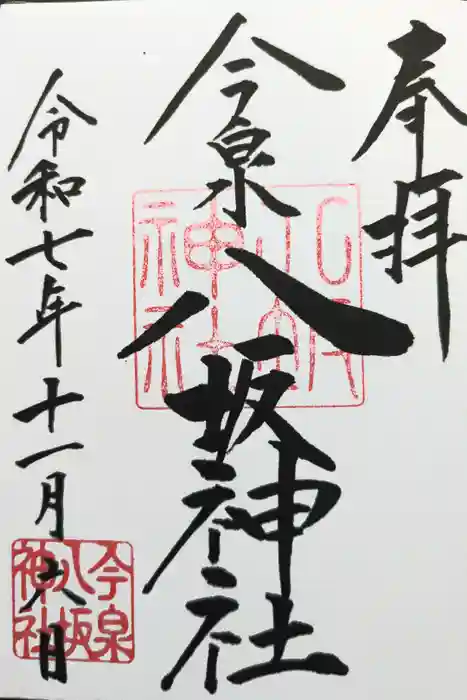 奉拝
今泉八坂神社
令和七年十一月六日
今泉
八坂
神社